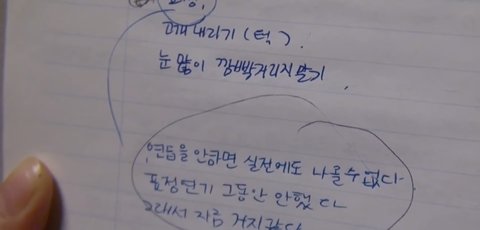 표정,
빼내리기 (턱).
눈 많이 깜빡거리지말기.
연듭을 안하면 실전에도 나올수 없다
표정연기 그동안 안했다
그래서 지금 거지같다